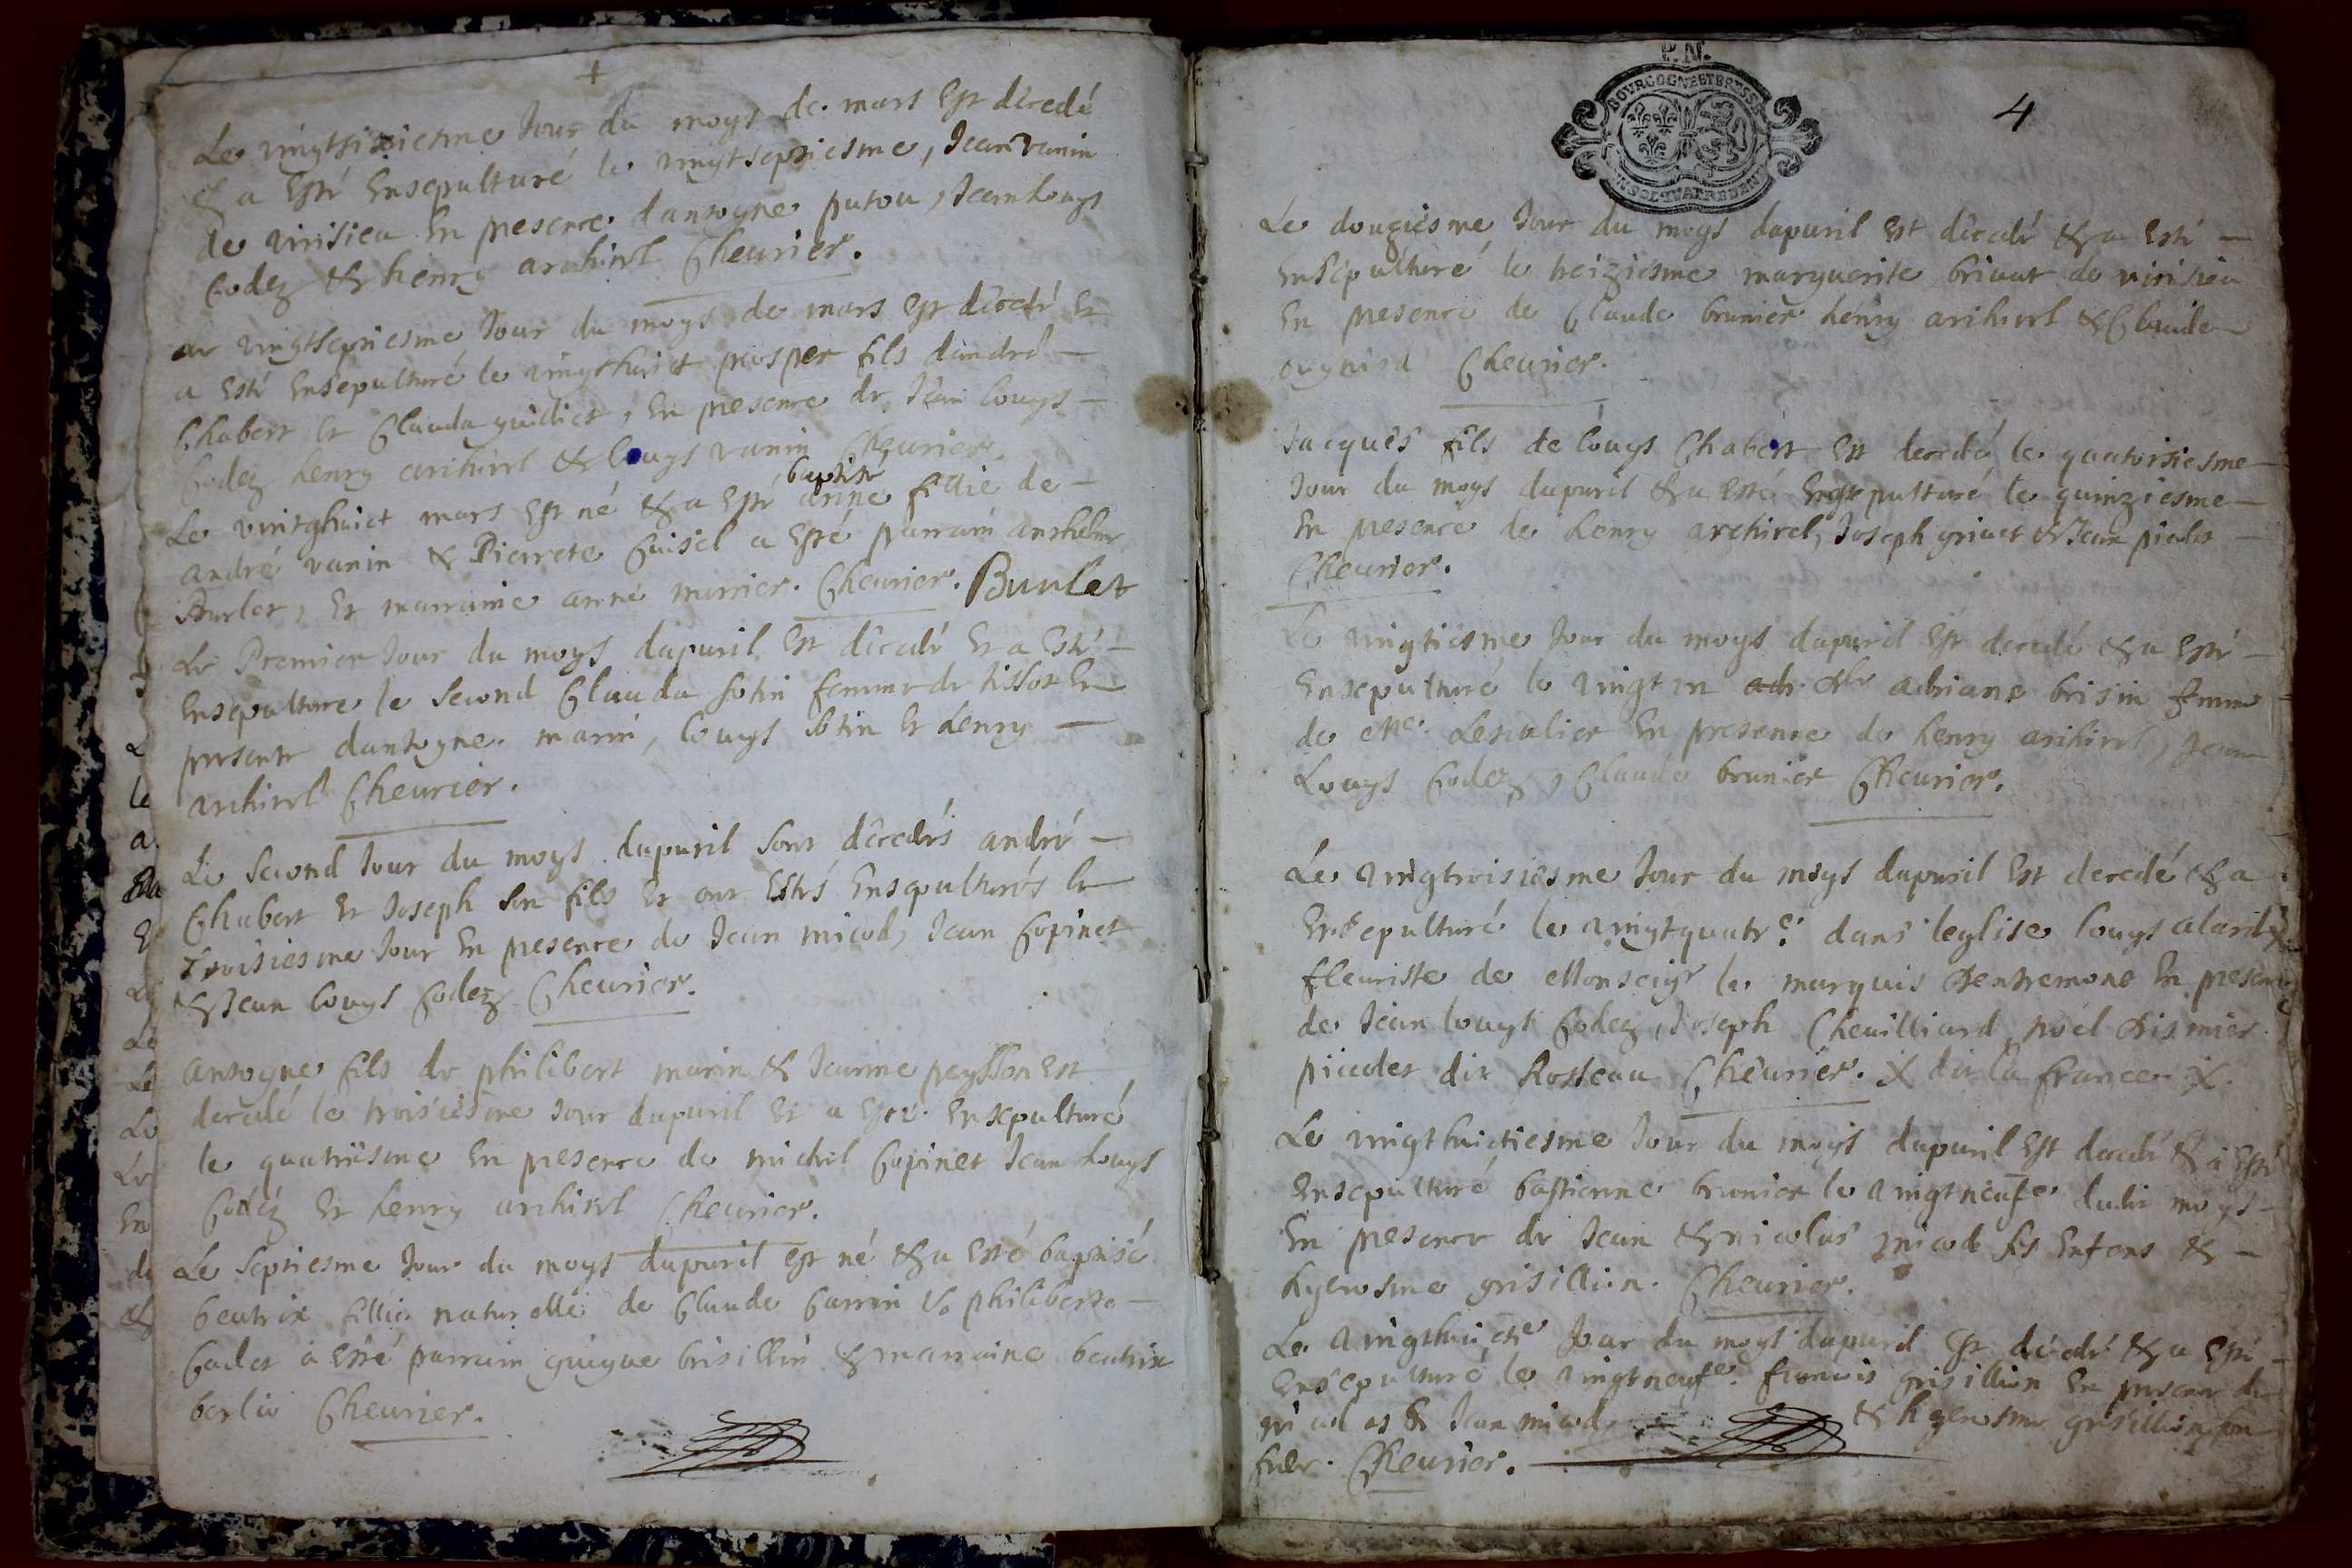 +
Le vingtsixiesme Jour du moys de mars Est decedé
& a Esté Ensepulturé le vingtseptiesme, Jean vanin
de virisieu En presence dantoyne putou, Jean Louys
Godez & henry archirel Cheurier.
Le vingtseptiesme Jour du moys de mars est decedé Et
a Esté Ensepulturé le vingthuict prosper fils dandré
Chabert Et Clauda guidict, En presence de Jean Louys
Godez henry archirel & Louys vanin Cheurier.
baptisé
Le vintghuict mars Est né & a Esté anne fillie de
andré vanin & Pierrete Cuisel a Esté parrain anthelme
Burlet, Et marraine anne mirrier. Cheurier. Burlet
Le Premier Jour du moys dapuril Est decedé Et a Esté
Ensepulture le second Clauda sotin femme de tissot En
presente dantoyne marin, Louys sotin Et henry
archirel Cheurier.
Le second Jour du moys dapuril sont decedés andré
Chabert Et Joseph son fils Et ont Estés Ensepulturés le
troisiesme Jour En presence de Jean micod, Jean Copinet
& Jean Louys Godez Cheurier.
antoyne fils de philibert marin & Jeanne peysson Est
decedé le troisiesme Jour dapuril Et a Esté Ensepulturé
le quatriesme En presence de michel Copinet Jean Louys
Godez Et henry archirel Cheurier.
Le septiesme Jour du moys dapuril est né & a Esté baptisé
beatrix fillie naturelle de Claude Garrin & philiberte
Gadet a Esté parrain guigue brisillin & marraine beatrix
berlio Cheurier.
P.N.
BOURGOGNE ET BRESSE
4
Le douziesme Jour du moys dapuril Est decedé & a Esté
Ensepulturé le treiziesme marguerite briuat de virisieu
En presence de Claude brunier henry archirel & Claude
Cheurier.
Jacques fils de Louys Chabert Est decedé le quatorsiesme
Jour du moys dapuril & a Esté Ensepulturé le quinziesme
En presence de henry archirel, Joseph griuet & Jean picolet
Cheurier.
Le vingtiesme Jour du moys dapuril Est decedé & a Esté
Ensepulturé le vingt un adriane brisin femme
de Me. Lescalier En presence de henry archirel, Jean
Louys Godez, Claude brunier Cheurier.
Le vingtroisiesme Jour du moys dapuril Est decedé & a
Ensepulturé le vingtquatre. dans leglise Louys alard X
fleuriste de Monseigr le marquis Dentremons En presence
de Jean Louys Godez, Joseph Cheuilliard, noël Dismier
picolet dit Rosseau Cheurier. X dit la france X.
Le vingthuictiesme Jour du moys dapuril Est decedé & a Esté
Ensepulturé bastienne brunier le vingtneufe dudit moys
En presence de Jean & nicolas micod ses Enfans &
hyerosme grisillion. Cheurier.
Le vingthuicte Jour du moys dapuril Est decedé & a Esté
Ensepulturé le vingtneufe. francois grisillion En presence de
nicolas & Jean micod & hyerosme grisillion son
frere. Cheurier.